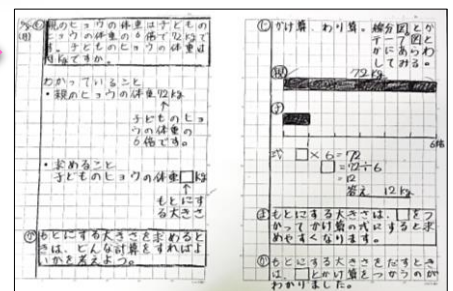 親のヒョウの体重は子どもの
ヒョウの体重の6倍で72kgで
す。子どものヒョウの体重は
何kgですか。
わかっていること
・親のヒョウの体重72kg
↑
子どものヒョ
ウの体重の
6倍です。
・求めること
子どものヒョウの体重□kg
↑
もとにす
る大きさ
もとにする大きさを求めると
きは、どんな計算をすればよ
いかを考えよう。
かけ算、わり算。線分図とか
テープ図と
かにあらわ
してみる。
72kg
親
子
6倍
式 □×6=72
□=72÷6
=12
答え 12kg
まもとにする大きさは、□をつ
かってかけ算の式にすると求
めやすくなります。
もとにする大きさをだすとき
は、□とかけ算をつかうのが
わかりました。